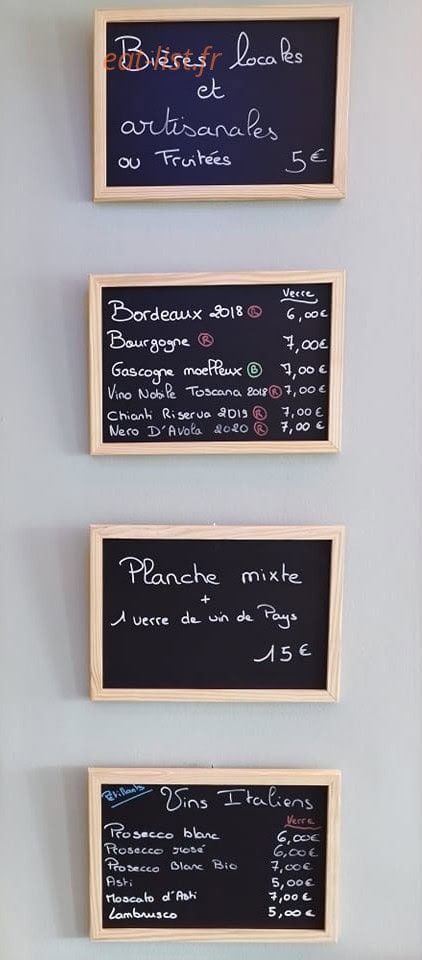 Bières locales
eat-list.fr
et
artisanales
ou Fruitées 5€
Verre
Bordeaux 2018 R 6,00€
Bourgogne R 7,00€
Gascogne moelleux B 7,00€
Vino Nobile Toscana 2018 R 7,00€
Chianti Riserva 2019 R 7,00€
Nero D'Avola 2020 R 7,00€
Planche mixte
+
1 verre de vin de Pays
15€
Pétillants Vins Italiens
Verre
Prosecco blanc 6,00€
Prosecco rosé 6,00€
Prosecco Blanc Bio 7,00€
Asti 5,00€
Moscato d'Asti 7,00€
Lambrusco 5,00€